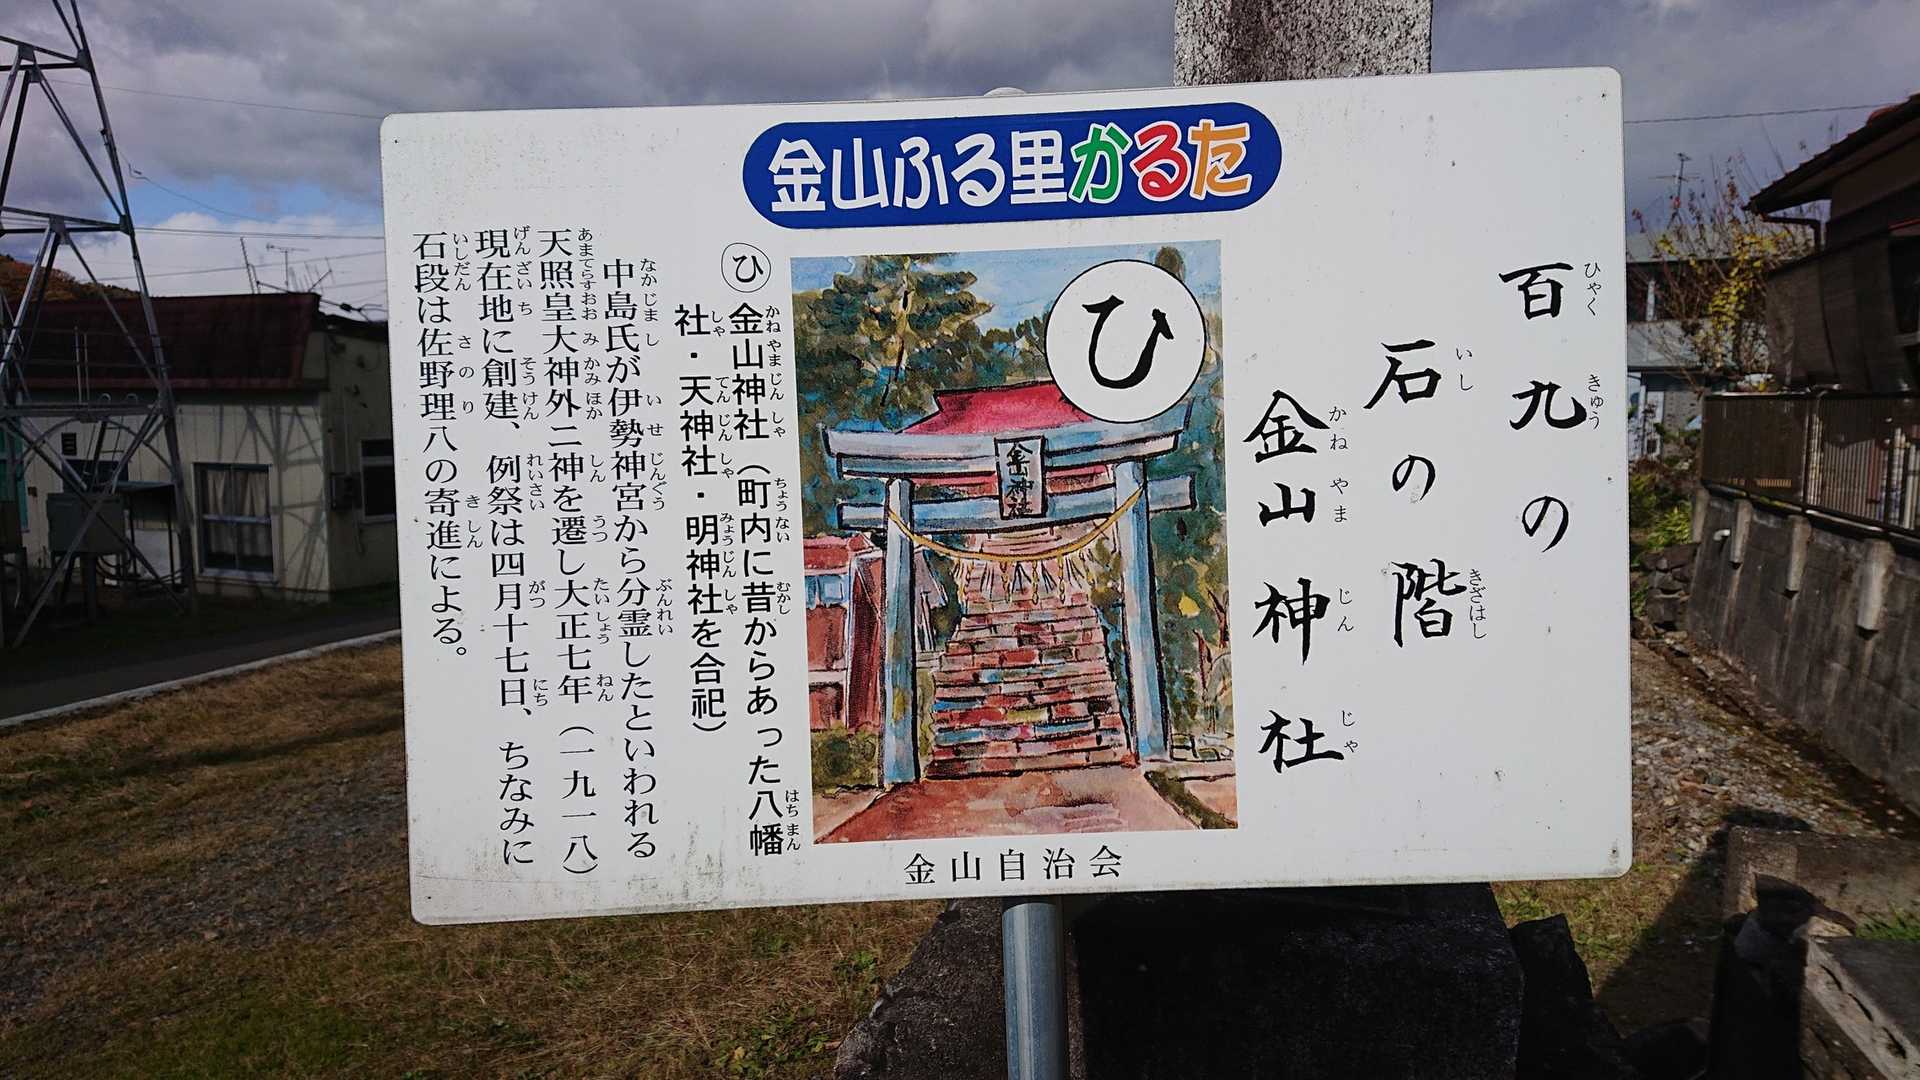 金山ふる里かるた
百九の
石の階
金山神社
ひ
金山神社
ひ 金山神社（町内に昔からあった八幡
社・天神社・明神社を合祀）
中島氏が伊勢神宮から分霊したといわれる
天照皇大神外二神を遷し大正七年（一九一八）
現在地に創建、例祭は四月十七日、ちなみに
石段は佐野理八の寄進による。
金山自治会